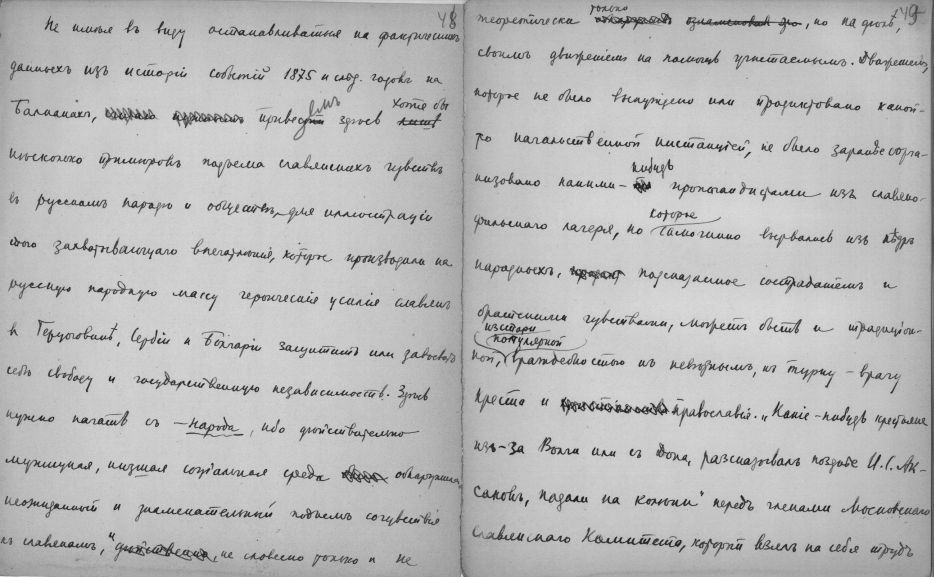 48
Не имѣя въ виду останавливаться на фактическихъ
данныхъ изъ исторіи событій 1875 и слѣд. годовъ на
Балканахъ, приведемъ здѣсь хотя бы
нѣсколько примѣровъ подъема славянскихъ чувствъ
въ русскомъ народѣ и обществѣ, для иллюстраціи
того захватывающаго впечатлѣнія, которое производили на
русскую народную массу героическія усилія славянъ
въ Герцеговинѣ, Сербіи и Болгаріи защитить или завоевать
себѣ свободу и государственную независимость. Здѣсь
нужно начать съ народа, ибо дѣйствительно
мужицкая, низшая соціальная среда обнаружила
неожиданный и знаменательный подъемъ сочувствія
къ славянамъ, дѣйственно, не словесно только и не
49
теоретически только, но на дѣлѣ,
своимъ движеніемъ на помощь угнетаемымъ. Движеніемъ,
которое не было вынуждено или продиктовано какой-
то начальственной инстанціей, не было заранѣе орга-
низовано какими-нибудь пропагандистами изъ славяно-
фильскаго лагеря, но которое стихійно вырвалось изъ нѣдръ
народныхъ, подсказанное состраданіемъ и
братскими чувствами, можетъ быть и традиціон-
ной, изстари популярной враждебностью къ невѣрнымъ, къ турку - врагу
Креста и Православія. „Какіе-нибудь крестьяне
изъ-за Волги или съ Дона, разсказывалъ позднѣе И.С. Ак-
саковъ, падали на колѣни" передъ членами Московскаго
Славянскаго Комитета, который взялъ на себя трудъ